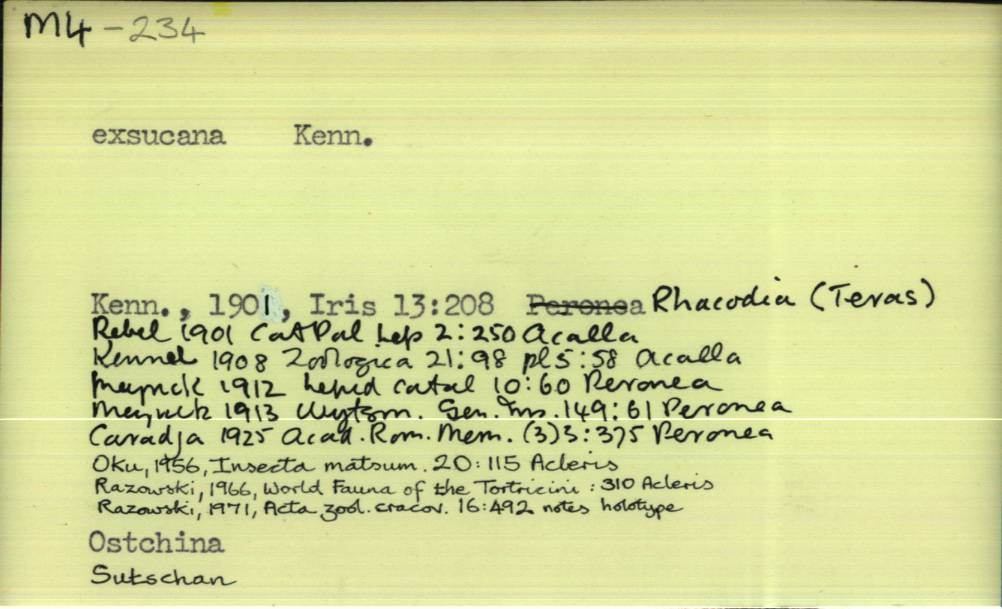 M4-234
exsucana Kenn.
Kenn., 1901, Iris 13:208 Peronea Rhacodia (Teras)
Rebel 1901 Cat Pal Lep 2:250 Acalla
Kennel 1908 Zoologica 21:98 pl 5:58 Acalla
Meyrick 1912 Lepid Catal 10:60 Peronea
Meyrick 1913 Wytsm. Gen. Ins. 149:61 Peronea
Caradja 1925 Acad. Rom. Mem. (3)3:375 Peronea
Oku, 1956, Insecta matsum. 20:115 Acleris
Razowski, 1966, World Fauna of the Tortricini : 310 Acleris
Razowski, 1971, Acta zool. cracov. 16:492 notes holotype
Ostchina
Sutschan